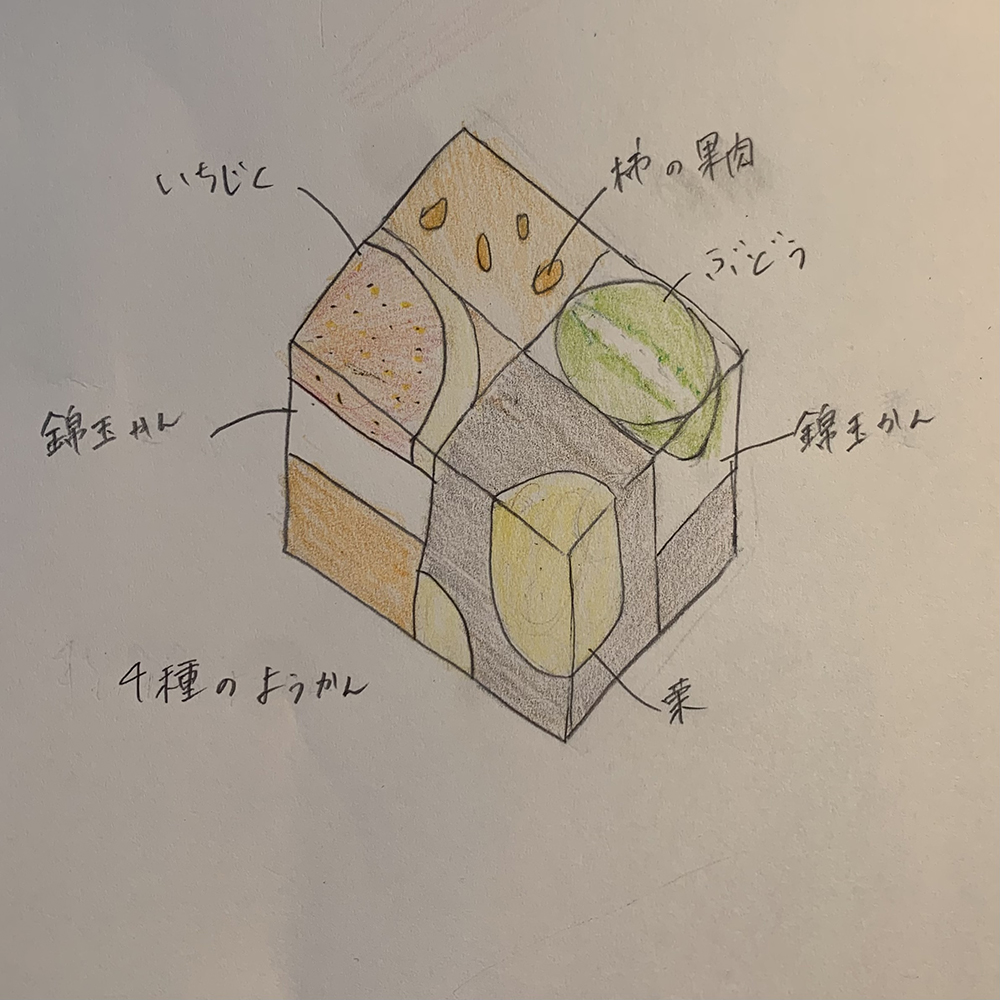 いちじく
柿の果肉
ぶどう
錦玉かん
錦玉かん
4種のようかん
栗